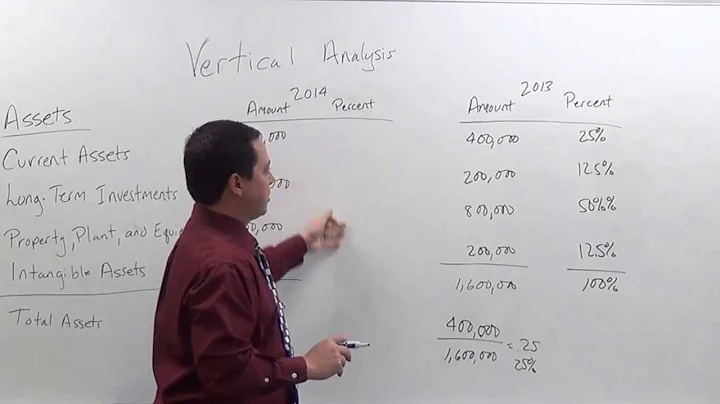 Vertical Analysis
2014 2013
Assets Amount Percent Amount Percent
Current Assets 400,000 25%
Long-Term Investments 200,000 12.5%
Property, Plant, and 800,000 50%%
Intangible Assets 200,000 12.5%
Total Assets 1,600,000 100%
400,000
1,600,000 = .25
25%